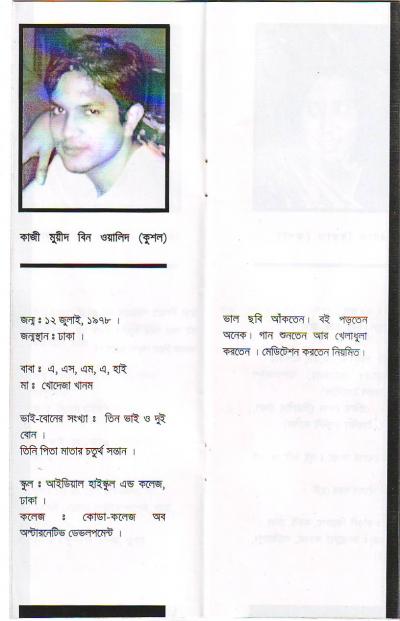 কাজী মুয়ীদ বিন ওয়ালিদ (কুশল)
জন্ম ঃ ১২ জুলাই, ১৯৭৮ ।
জন্মস্থান ঃ ঢাকা ।
বাবা ঃ এ, এস, এম, এ, হাই
মা ঃ খোদেজা খানম
ভাই-বোনের সংখ্যা ঃ তিন ভাই ও দুই
বোন ।
তিনি পিতা মাতার চতুর্থ সন্তান ।
স্কুল ঃ আইডিয়াল হাইস্কুল এন্ড কলেজ,
ঢাকা ।
কলেজ ঃ কোডা-কলেজ অব
অল্টারনেটিভ ডেভলপমেন্ট ।
ভাল ছবি আঁকতেন। বই পড়তেন
অনেক। গান শুনতেন আর খেলাধুলা
করতেন । মেডিটেশন করতেন নিয়মিত।